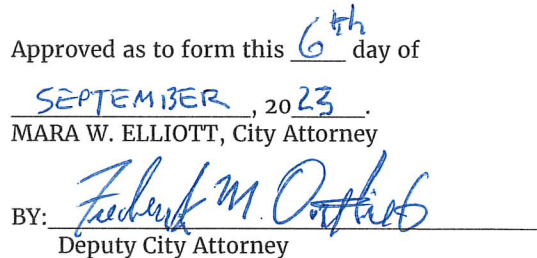 Approved as to form this 6th day of
SEPTEMBER, 2023.
MARA W. ELLIOTT, City Attorney
BY: Frederick M. Ortlieb
Deputy City Attorney